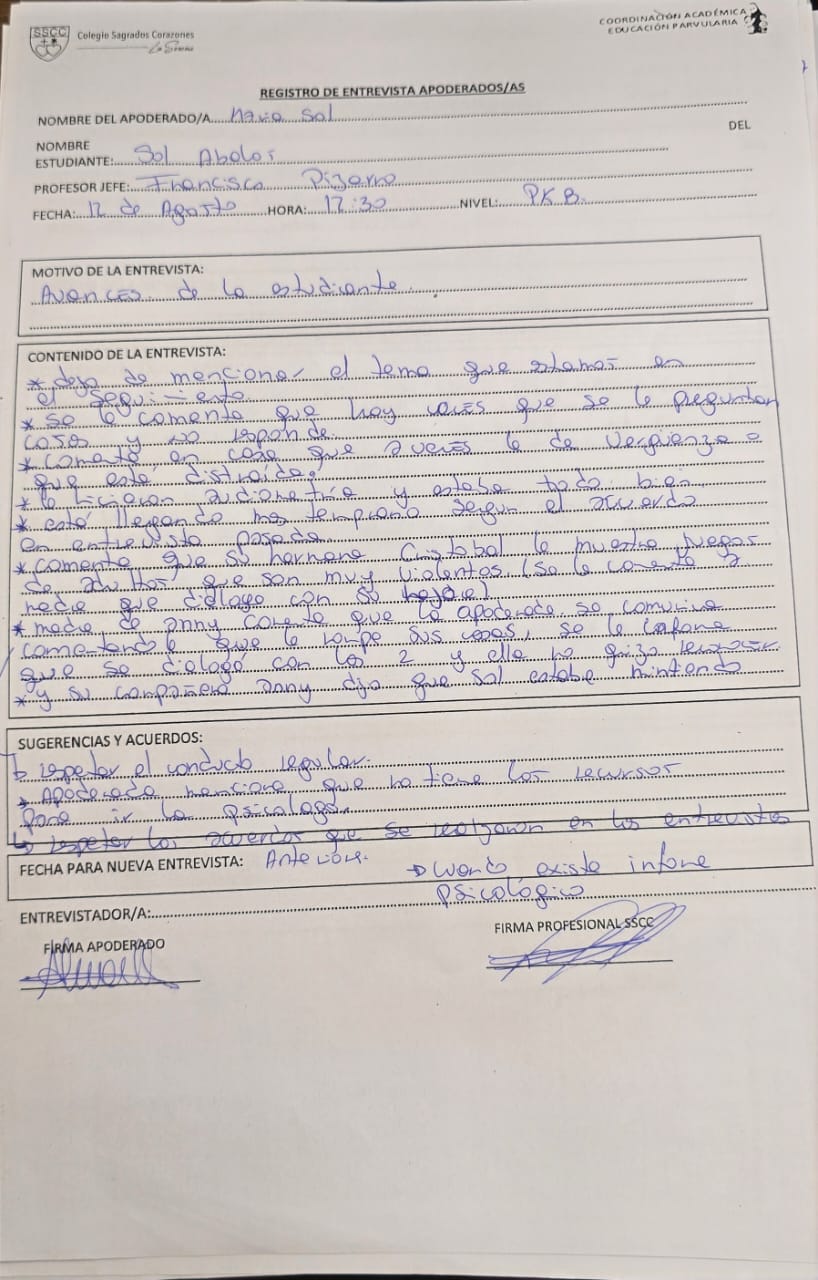 SSCC
Colegio Sagrados Corazones
La Serena
COORDINACIÓN ACADÉMICA
EDUCACIÓN PARVULARIA
REGISTRO DE ENTREVISTA APODERADOS/AS
NOMBRE DEL APODERADO/A Maria Sol
DEL
NOMBRE
ESTUDIANTE: Sol Abalos
PROFESOR JEFE: Francisca Pizarro
FECHA: 12 de Agosto HORA: 17:30 NIVEL: PK B.
MOTIVO DE LA ENTREVISTA:
Avances de la estudiante.
CONTENIDO DE LA ENTREVISTA:
* deja de mencionar el tema que estamos en
el seguimiento
* se le comenta que hay veces que se le preguntan
cosas y no responde.
* comentó en casa que a veces le da vergüenza o
que está distraída.
* le hicieron audiometría y estaba todo bien
* está llegando mas temprano segun el acuerdo
en entrevista pasada.
* comenta que su hermano Cristobal le muestra juegos
de adultos que son muy violentos (se le comenta a
que dialogo con su
* de anny comenta que la apoderada se comunica
comentandole que le rompe sus cosas, se le informa
que se dialogó con las 2 y ella no quizo reconocer
* y su compañera anny dijo que Sol estaba mintiendo
SUGERENCIAS Y ACUERDOS:
respetar el conducto regular.
* Apoderada menciona que no tiene los recursos
para ir la psicologa.
↳ respetar los acuerdos que se realizaron en las entrevistas
FECHA PARA NUEVA ENTREVISTA: Anteriore. → Cuando exista informe
psicológico
ENTREVISTADOR/A:
FIRMA APODERADO
FIRMA PROFESIONAL SSCC